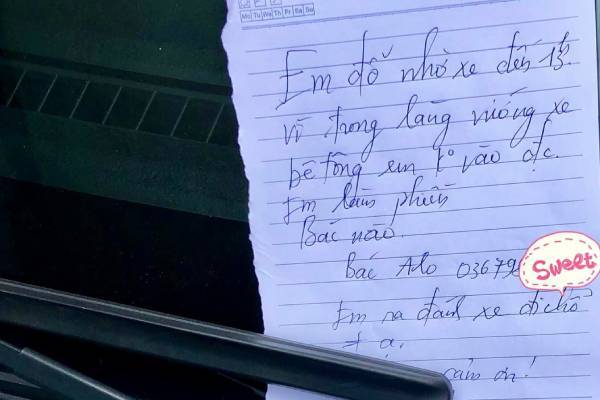 Mo Tu We Th Fr Sa Su
Em đỗ nhờ xe đến 13h
vì trong làng vướng xe
bê tông em ko vào đc.
Em làm phiền
Bác nào.
Bác Alo 03679
Sweet
Em ra đánh xe đi chỗ
≠ ạ.
cảm ơn!